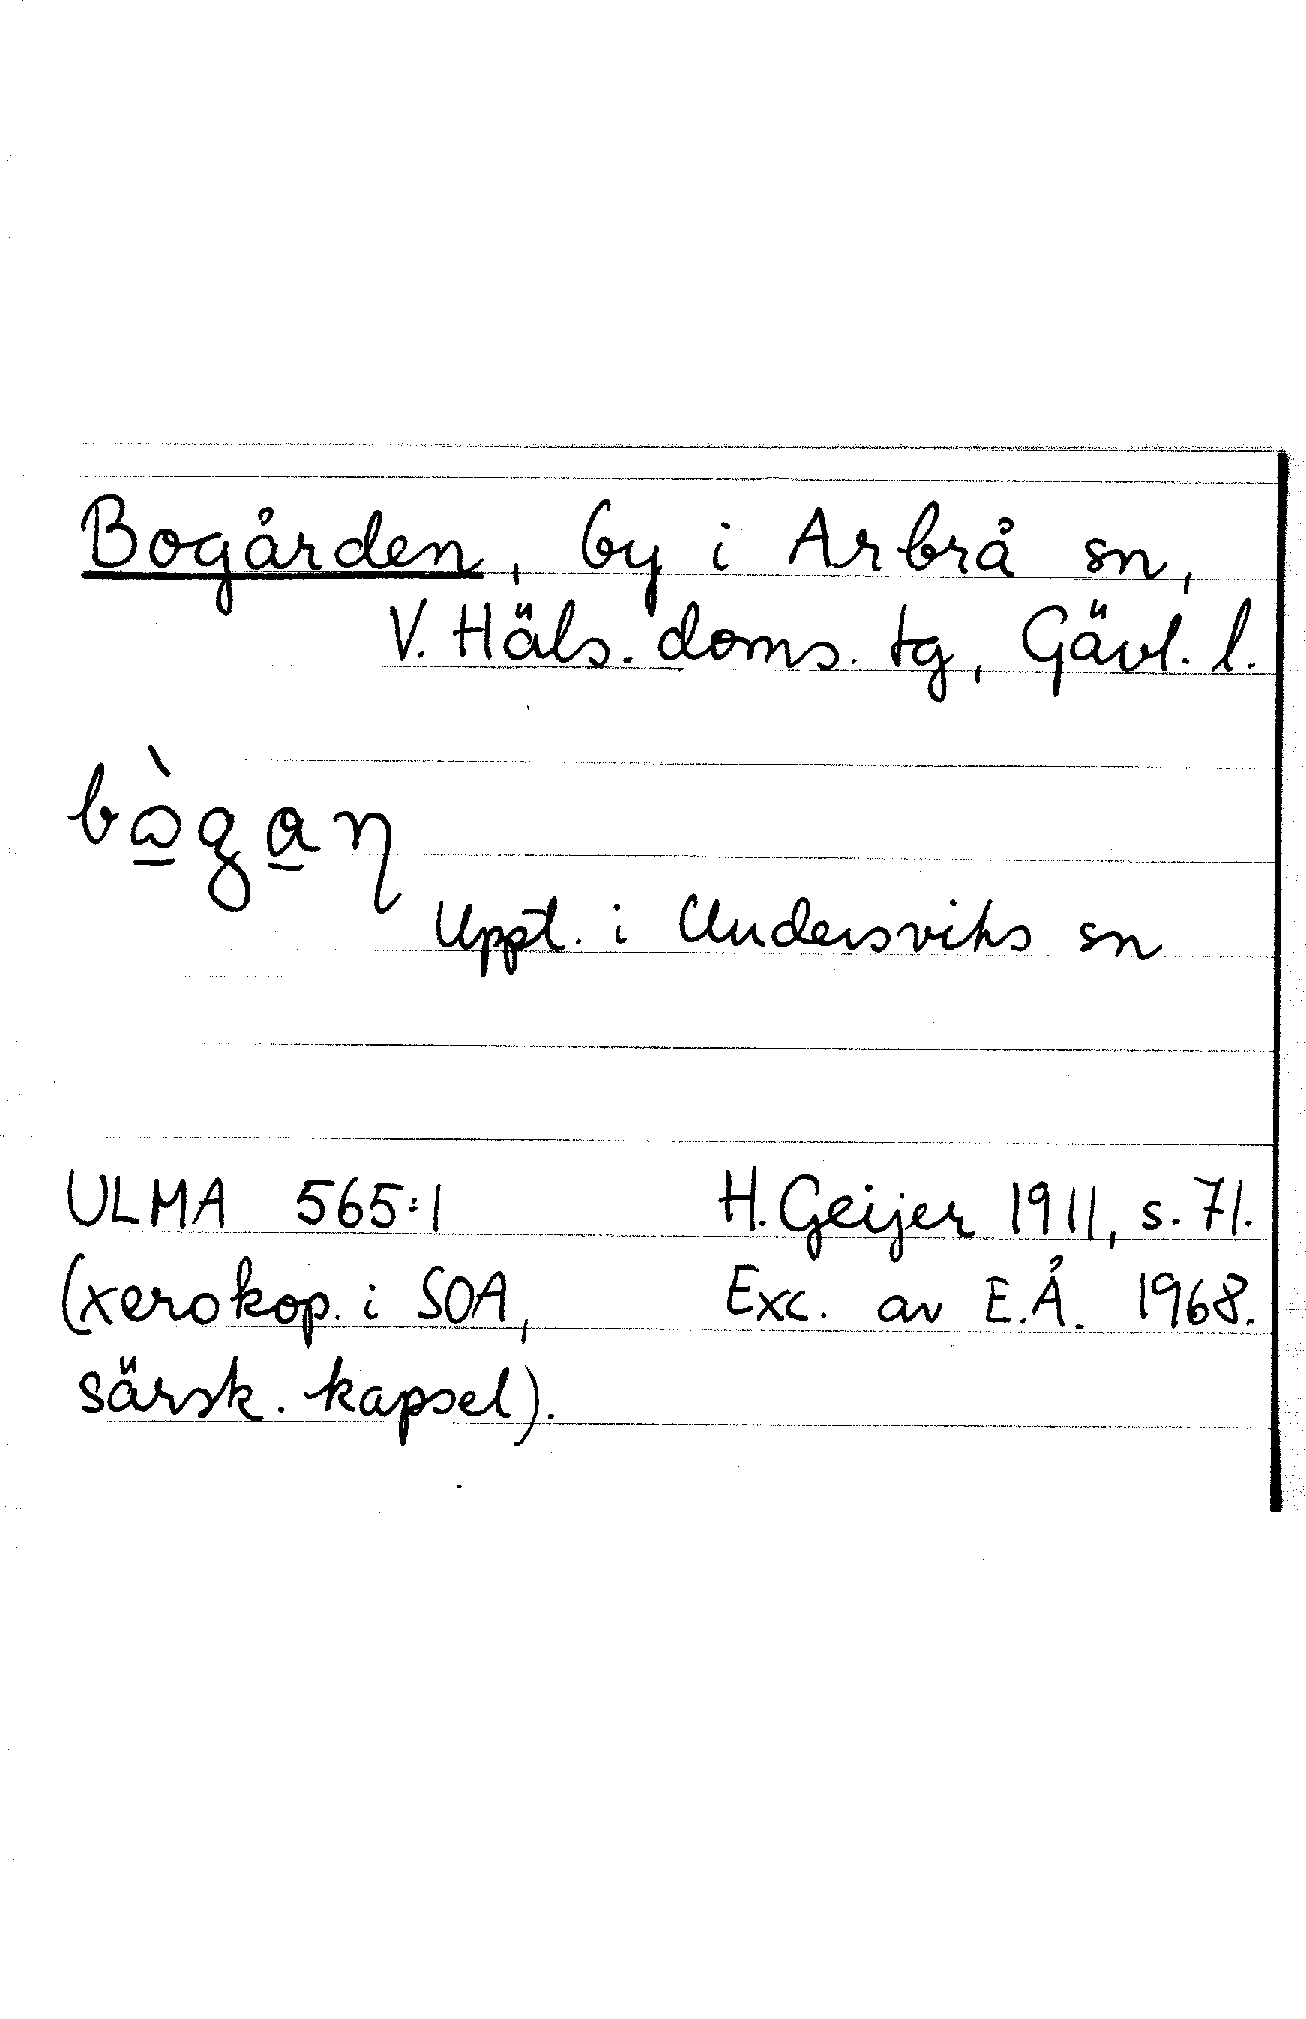 Bogården, by i Arbrå sn,
V. Häls. doms. tg, Gävl. l.
bὼ̲ga̲ɳ
Uppt. i Undersviks sn
ULMA 565:1
H. Geijer 1911, s. 71.
(xerokop. i SOA,
Exc. av E.Å. 1968.
särsk. kapsel).